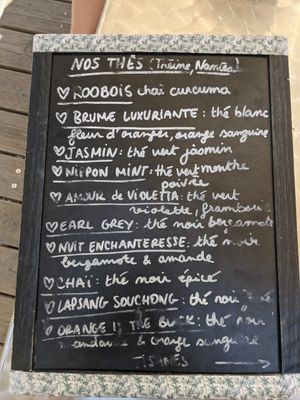 NOS THÉS (Théine,
♡ ROOBOIS chaï curcuma
♡ BRUME LUXURIANTE : thé blanc
fleur d'oranger, orange sanguine
♡ JASMIN : thé vert jasmin
♡ NIPPON MINT : thé vert menthe
poivrée
♡ AMOUR de VIOLETTA : thé vert
violette, framboise
♡ EARL GREY : thé noir bergamote
♡ NUIT ENCHANTERESSE : thé noir
bergamote & amande
♡ CHAÏ : thé noir épicé
♡ LAPSANG SOUCHONG : thé noir
♡ ORANGE THE : thé noir
& orange sanguine
TISANES →